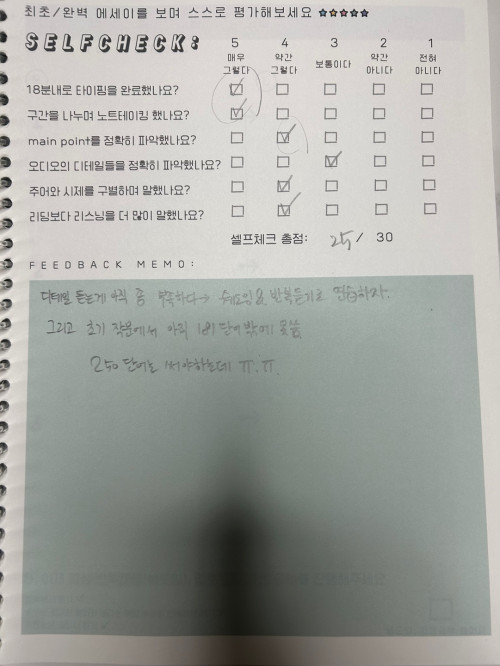 최초/완벽 에세이를 보며 스스로 평가해보세요 ☆☆☆☆☆
SELFCHECK:
5 4 3 2 1
매우 그렇다 약간 그렇다 보통이다 약간 아니다 전혀 아니다
18분내로 타이핑을 완료했나요?
구간을 나누며 노트테이킹 했나요?
main point를 정확히 파악했나요?
오디오의 디테일들을 정확히 파악했나요?
주어와 시제를 구별하며 말했나요?
리딩보다 리스닝을 더 많이 말했나요?
셀프체크 총점: 25 / 30
FEEDBACK MEMO:
디테일 듣는게 아직 좀 부족하다 → 반복듣기로 연습하자.
그리고 초기 작문에서 아직 181 단어밖에 못씀
250 단어는 써야하는데 ㅠ.ㅠ.